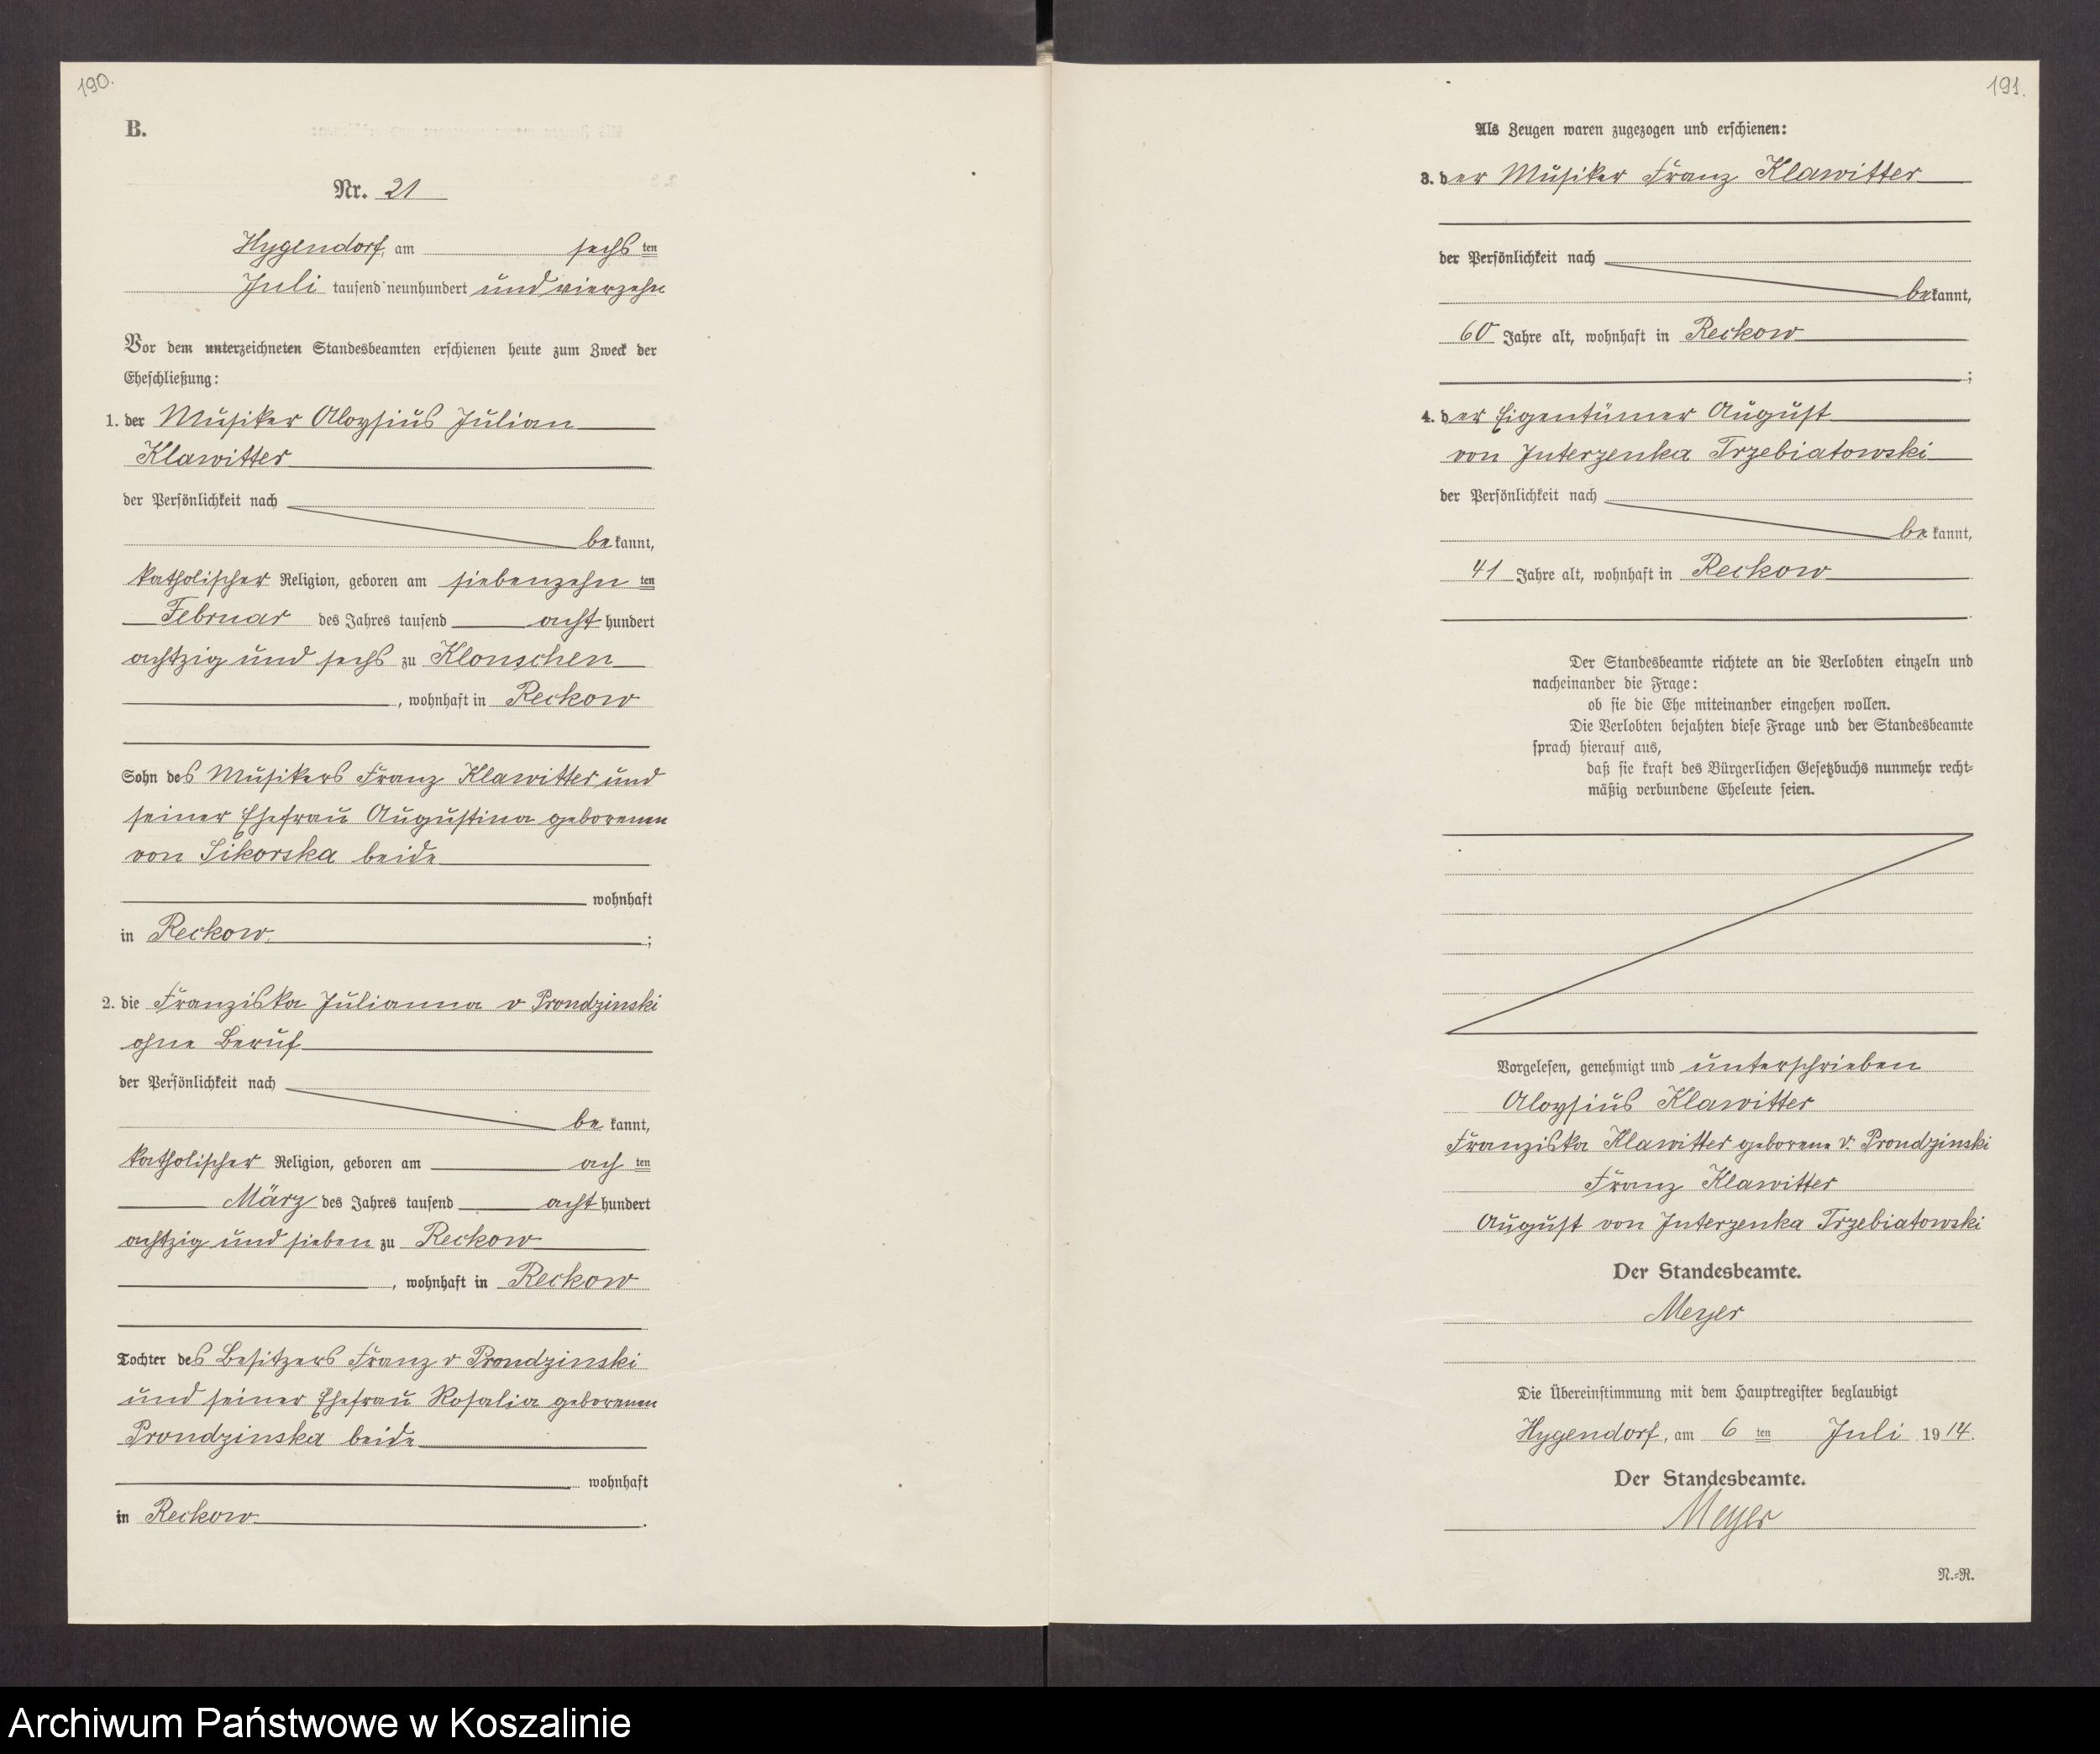 190.
B.
Nr. 21
Hygendorf, am sechs ten
Juli tausend neunhundert und vierzehn
Vor dem unterzeichneten Standesbeamten erschienen heute zum Zweck der
Eheschließung:
1. der Musiker Aloysius Julian
Klawitter
der Persönlichkeit nach
be kannt,
katholischer Religion, geboren am siebenzehn ten
Februar des Jahres tausend acht hundert
achtzig und sechs zu Klonschen
, wohnhaft in Reckow
Sohn des Musikers Franz Klawitter und
seiner Ehefrau Augustina geborenen
von Sikorska beide
wohnhaft
in Reckow ;
2. die Franziska Julianna v Prondzinski
ohne Beruf
der Persönlichkeit nach
be kannt,
katholischer Religion, geboren am ach ten
März des Jahres tausend acht hundert
achtzig und sieben zu Reckow
, wohnhaft in Reckow
Tochter des Besitzers Franz v Prondzinski
und seiner Ehefrau Rosalia geborenen
Prondzinska beide
wohnhaft
in Reckow .
191.
Als Zeugen waren zugezogen und erschienen:
3. der Musiker Franz Klawitter
der Persönlichkeit nach
bekannt,
60 Jahre alt, wohnhaft in Reckow
;
4. der Eigentümer August
von Juterzenka Trzebiatowski
der Persönlichkeit nach
be kannt,
41 Jahre alt, wohnhaft in Reckow
.
Der Standesbeamte richtete an die Verlobten einzeln und
nacheinander die Frage:
ob sie die Ehe miteinander eingehen wollen.
Die Verlobten bejahten diese Frage und der Standesbeamte
sprach hierauf aus,
daß sie kraft des Bürgerlichen Gesetzbuchs nunmehr recht-
mäßig verbundene Eheleute seien.
Vorgelesen, genehmigt und unterschrieben
Aloysius Klawitter
Franziska Klawitter geborene v. Prondzinski
Franz Klawitter
August von Juterzenka Trzebiatowski
Der Standesbeamte.
Meyer
Die Übereinstimmung mit dem Hauptregister beglaubigt
Hygendorf, am 6 ten Juli 1914.
Der Standesbeamte.
Meyer
N.-R.
Archiwum Państwowe w Koszalinie